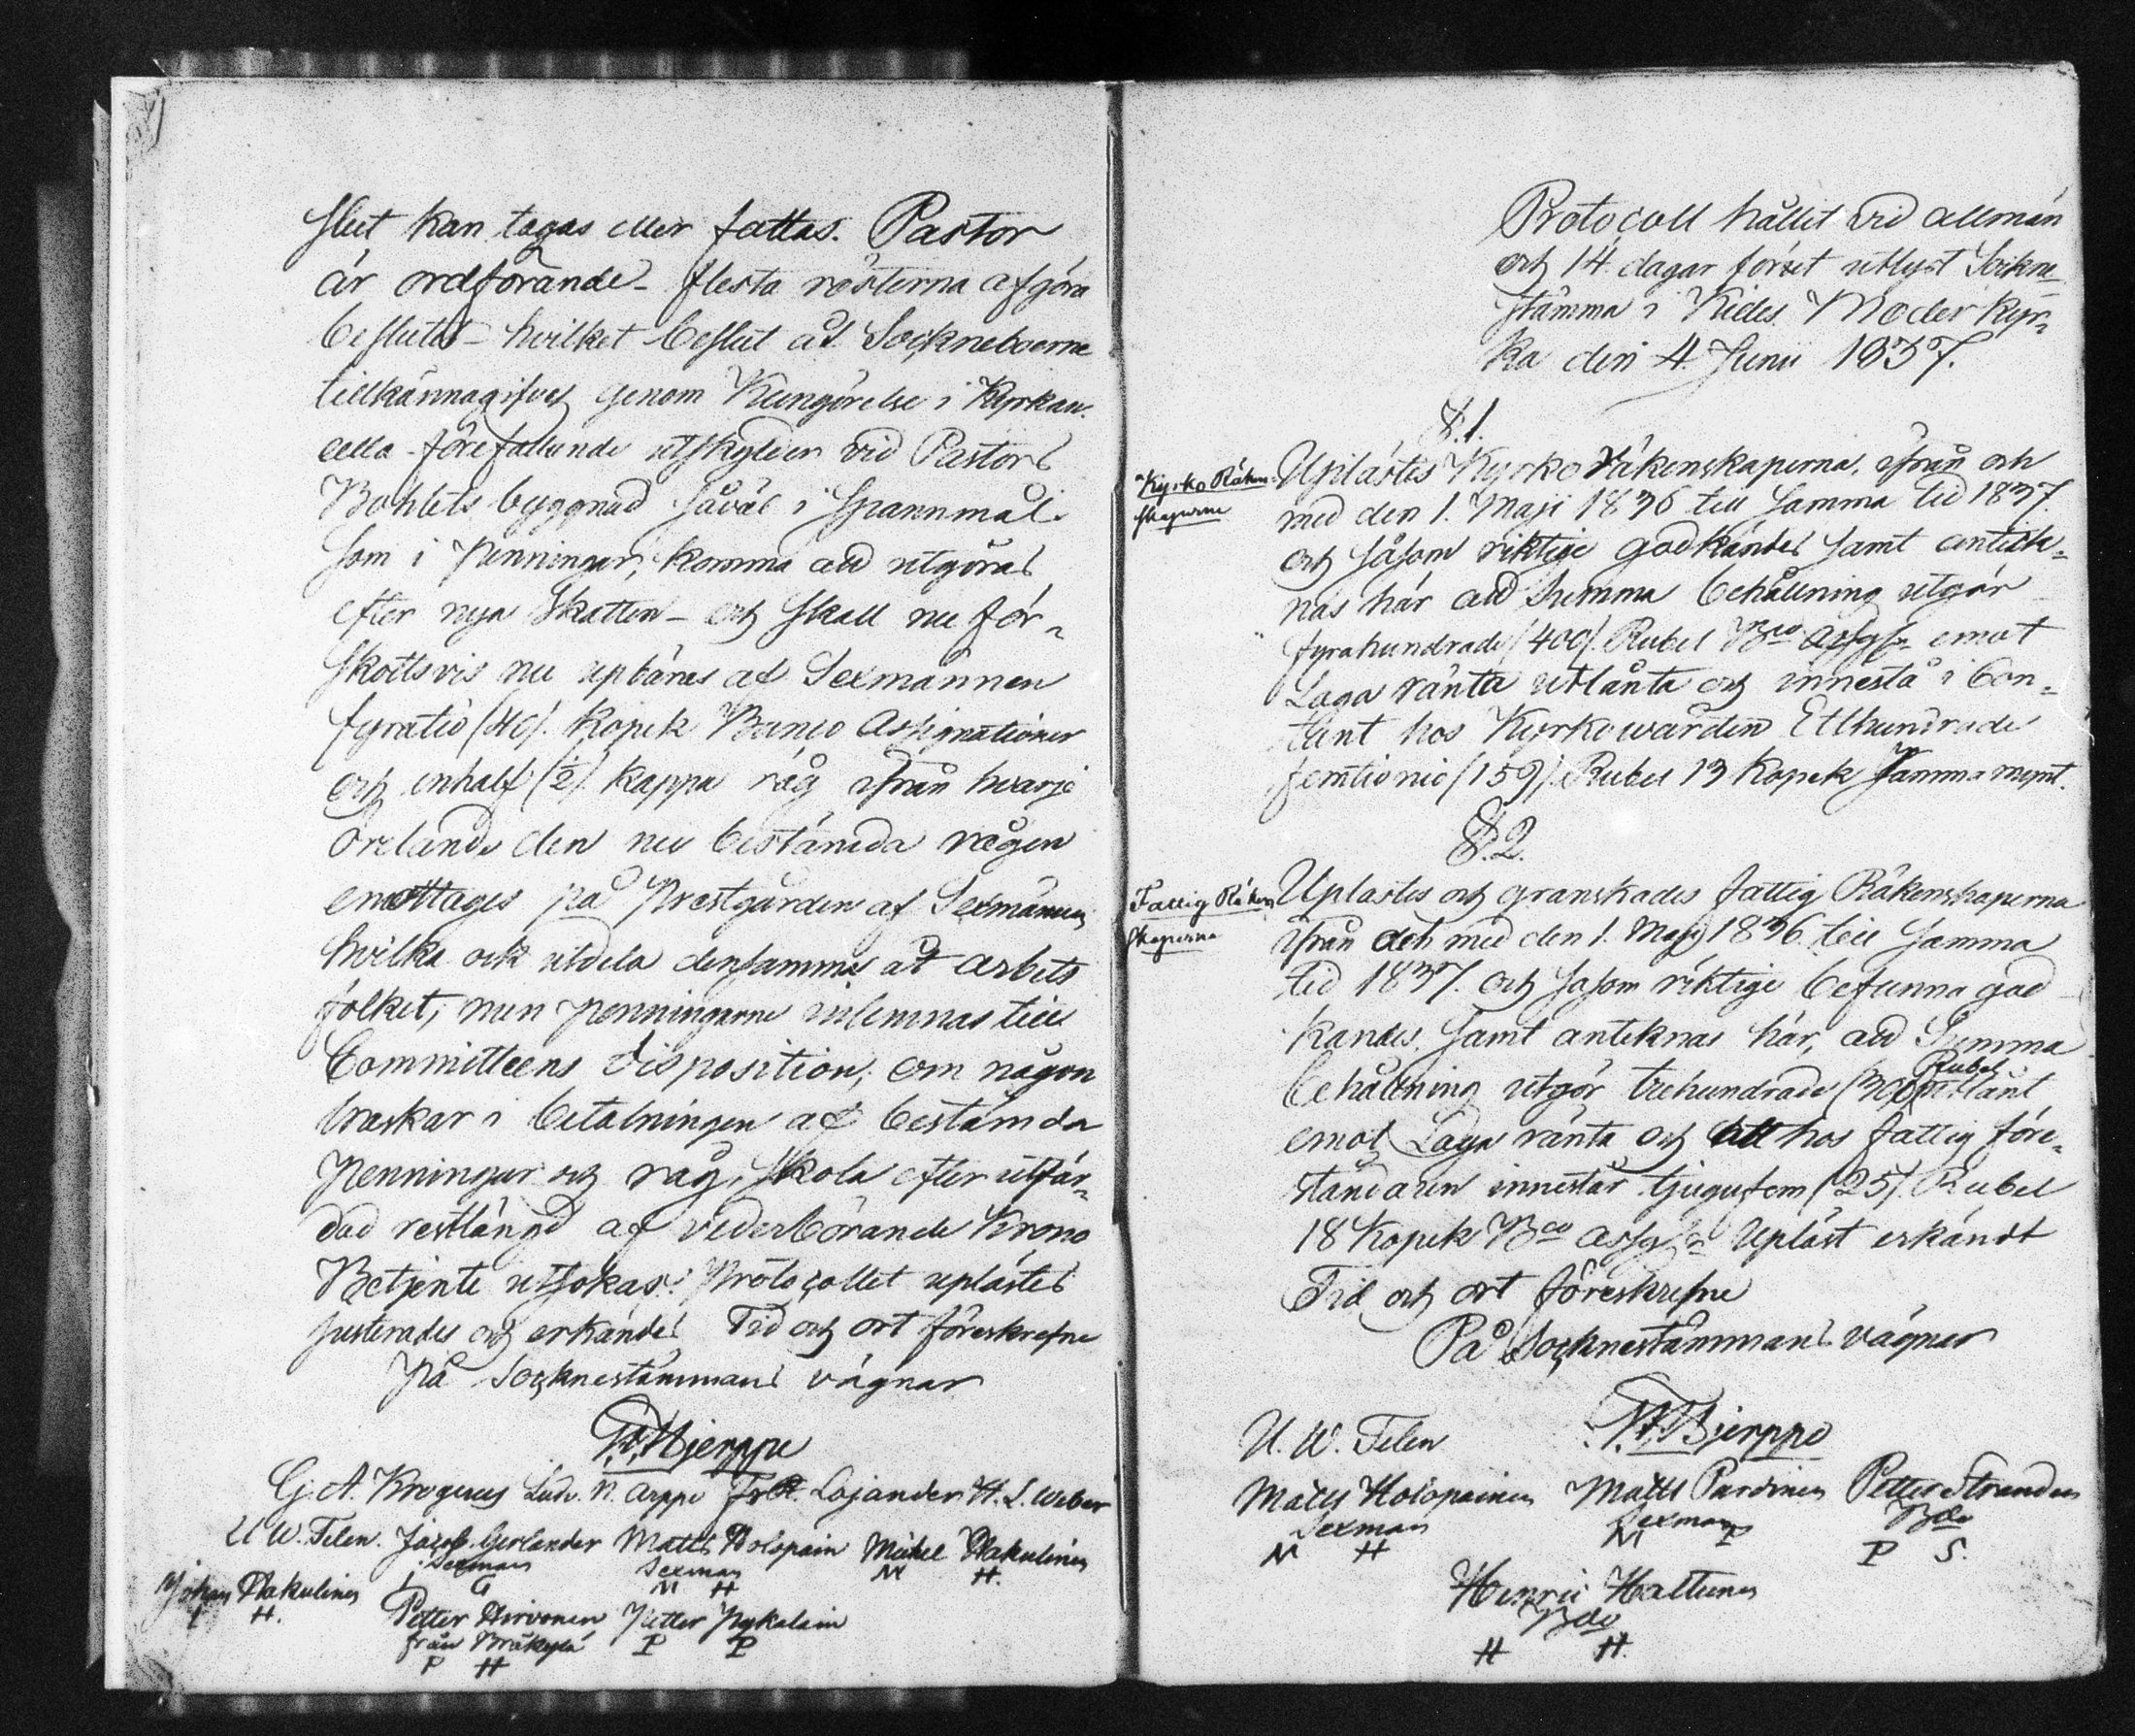 slut kan tagas eller fattas. Pastor
är ordförande – flesta rösterna afgöra
beslutet – hvilket beslut åt Sockneboerne
tillkännagifves genom Kungörelse i Kyrkan.
alla förefallande utskylder vid Pastors
Bohlets byggnad såväl i Spannmål
som i penningar, komma att utgöras
efter nya Skatten – och skall nu för-
skottsvis nu upbäras af Sexmännen
fyratio (40). Kopek Banco Assignationer
och enhalf (½) kappa råg ifrån hvarje
öreland den nu bestämda rågen
emottages på Prestgården af Sexmännen
hvilka ock utdela densamma åt arbets
folket; men penningarne inlemnas till
Committeens disposition; om någon
braskar i betalningen af bestämda
penningar och råg, skola efter utfär-
dad restlängd af vederbörande Krono
Betjente utsökas: Protocollet uplästes
justerades och erkändes Tid och ort föreskrefne
På Socknestämmans vägnar
Hjerppe
G. A. Krogerus Ludv. N. Arppe Lojander H. L. Weber
U W. Telen. Jacob Gerlander Matts Holopain Mickel Hakulinen
Sexman Sexman
J G M H M H.
Johan Hakulinen Petter Hirvonen Petter Pykälain
J H. från P P
P H
Protocoll hållit vid allmän
och 14 dagar förut utlyst Sockne-
stämma i Kides Moder Kyr-
ka den 4 Junii 1837.
§.1.
Kyrko Räken-
skaperne
Uplästes Kyrko räkenskaperna, ifrån och
med den 1. Maji 1836 till samma tid 1837.
och såsom riktige godkändes samt anteck-
nas här att Summa behållning utgör
fyrahundrade (400) Rubel Bco Assg:r emot
Laga ränta utlånta och innestå i Con-
tant hos Kyrkowärden Etthundrade
femtionio (159) Rubel 13 Kopek samma mynt.
§.2.
Fattig Räken
skaperna
Uplästes och granskades fattig Räkenskaperna
ifrån och med den 1. Maji 1836 till samma
tid 1837. och såsom riktige befunna god
kändes. samt anteknas här, att Summa
Rubel
behållning utgör trehundrade (300) utlånt
emot Laga ränta och hos fattig före-
ståndaren innestår tjugufem (25). Rubel
18 Kopek Bco assg:r Upläst erkändt
Tid och ort föreskrefne
På Socknestämmans vägnar
Hjerppe
U. W. Telen
Matts Holopainen Matts Pardinen Petter Stranden
Sexman Sexman Bde
M H M P P S.
Henric Haltunen
Bde
H H.